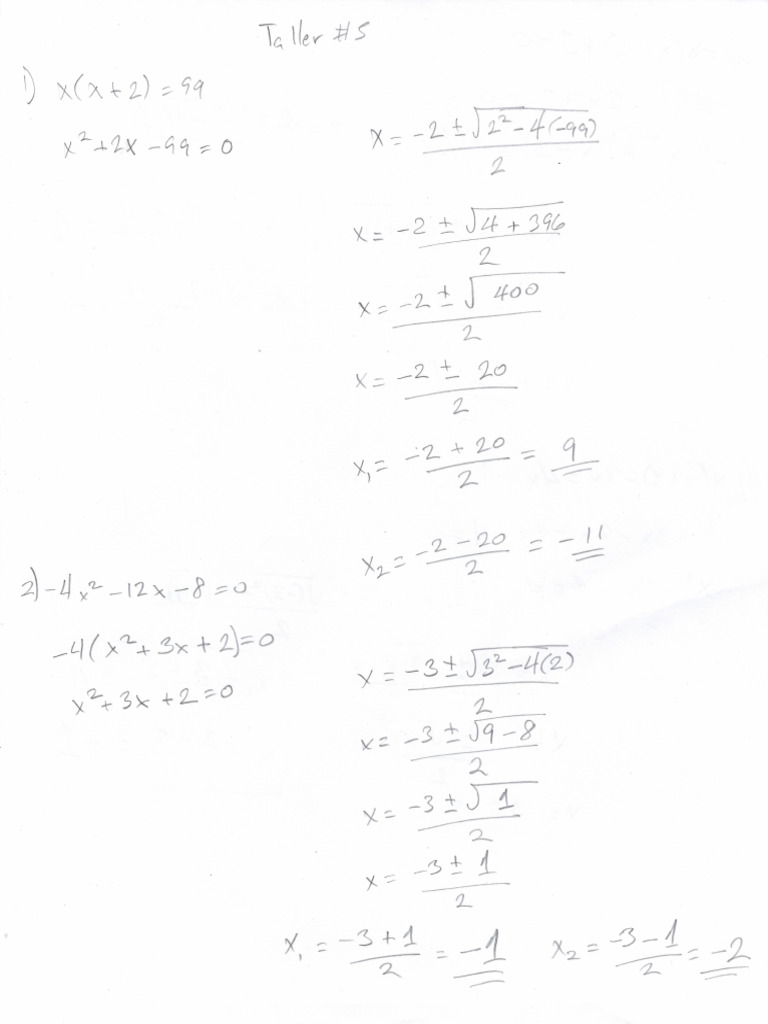 Taller #5
1) x(x+2) = 99
x² + 2x - 99 = 0
x = (-2 ± √(2² - 4(-99))) / 2
x = (-2 ± √(4 + 396)) / 2
x = (-2 ± √400) / 2
x = (-2 ± 20) / 2
x₁ = (-2 + 20) / 2 = 9
x₂ = (-2 - 20) / 2 = -11
2) -4x² - 12x - 8 = 0
-4(x² + 3x + 2) = 0
x² + 3x + 2 = 0
x = (-3 ± √(3² - 4(2))) / 2
x = (-3 ± √(9 - 8)) / 2
x = (-3 ± √1) / 2
x = (-3 ± 1) / 2
x₁ = (-3 + 1) / 2 = -1 x₂ = (-3 - 1) / 2 = -2